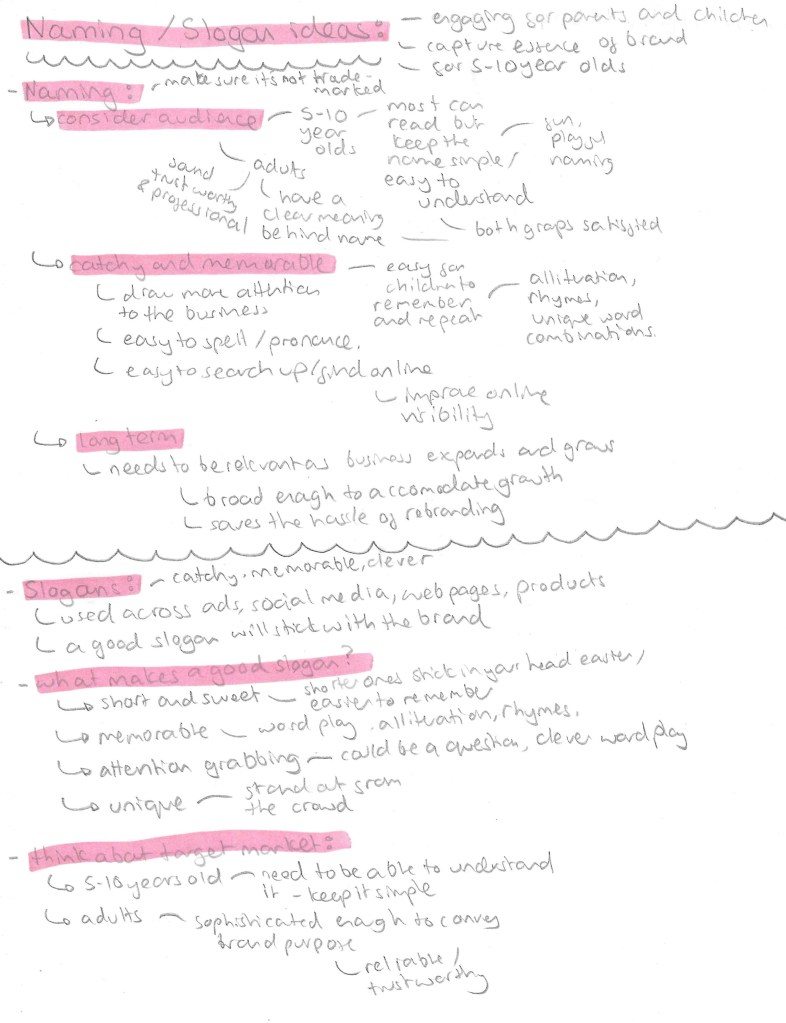 Naming / Slogan ideas:
- engaging for parents and children
- capture essence of brand
- for 5-10 year olds
- Naming:
- make sure it's not trade-
marked
consider audiace
- 5-10
year
olds
- most can
read but
keep the
name simple /
easy to
understand
- fun,
playful
naming
adults
sound
trustworthy
& professional
have a
clear meaning
behind name
both groups satisfyed
catchy and memorable
- easy for
children to
remember
and repeat
allituation,
rhymes,
unique word
combinations.
draw more attention
to the business
easy to spell / pronounce.
easy to search up / find online
improve online
visibility
long term
needs to be relevant as business expands and grows
broad enough to accomodate growth
saves the hassle of rebranding
- Slogans:
- catchy, memorable, clever
used across ads, social media, webpages, products
a good slogan will stick with the brand
- what makes a good slogan?
short and sweet - shorter ones stick in your head easier /
easier to remember
memorable - word play, allituation, rhymes.
attention grabbing - could be a question, clever word play
unique - stand out from
the crowd
- think about target market:
5-10 years old - need to be able to understand
it - keep it simple
adults - sophisticated enough to convey
brand purpose
reliable /
trustworthy